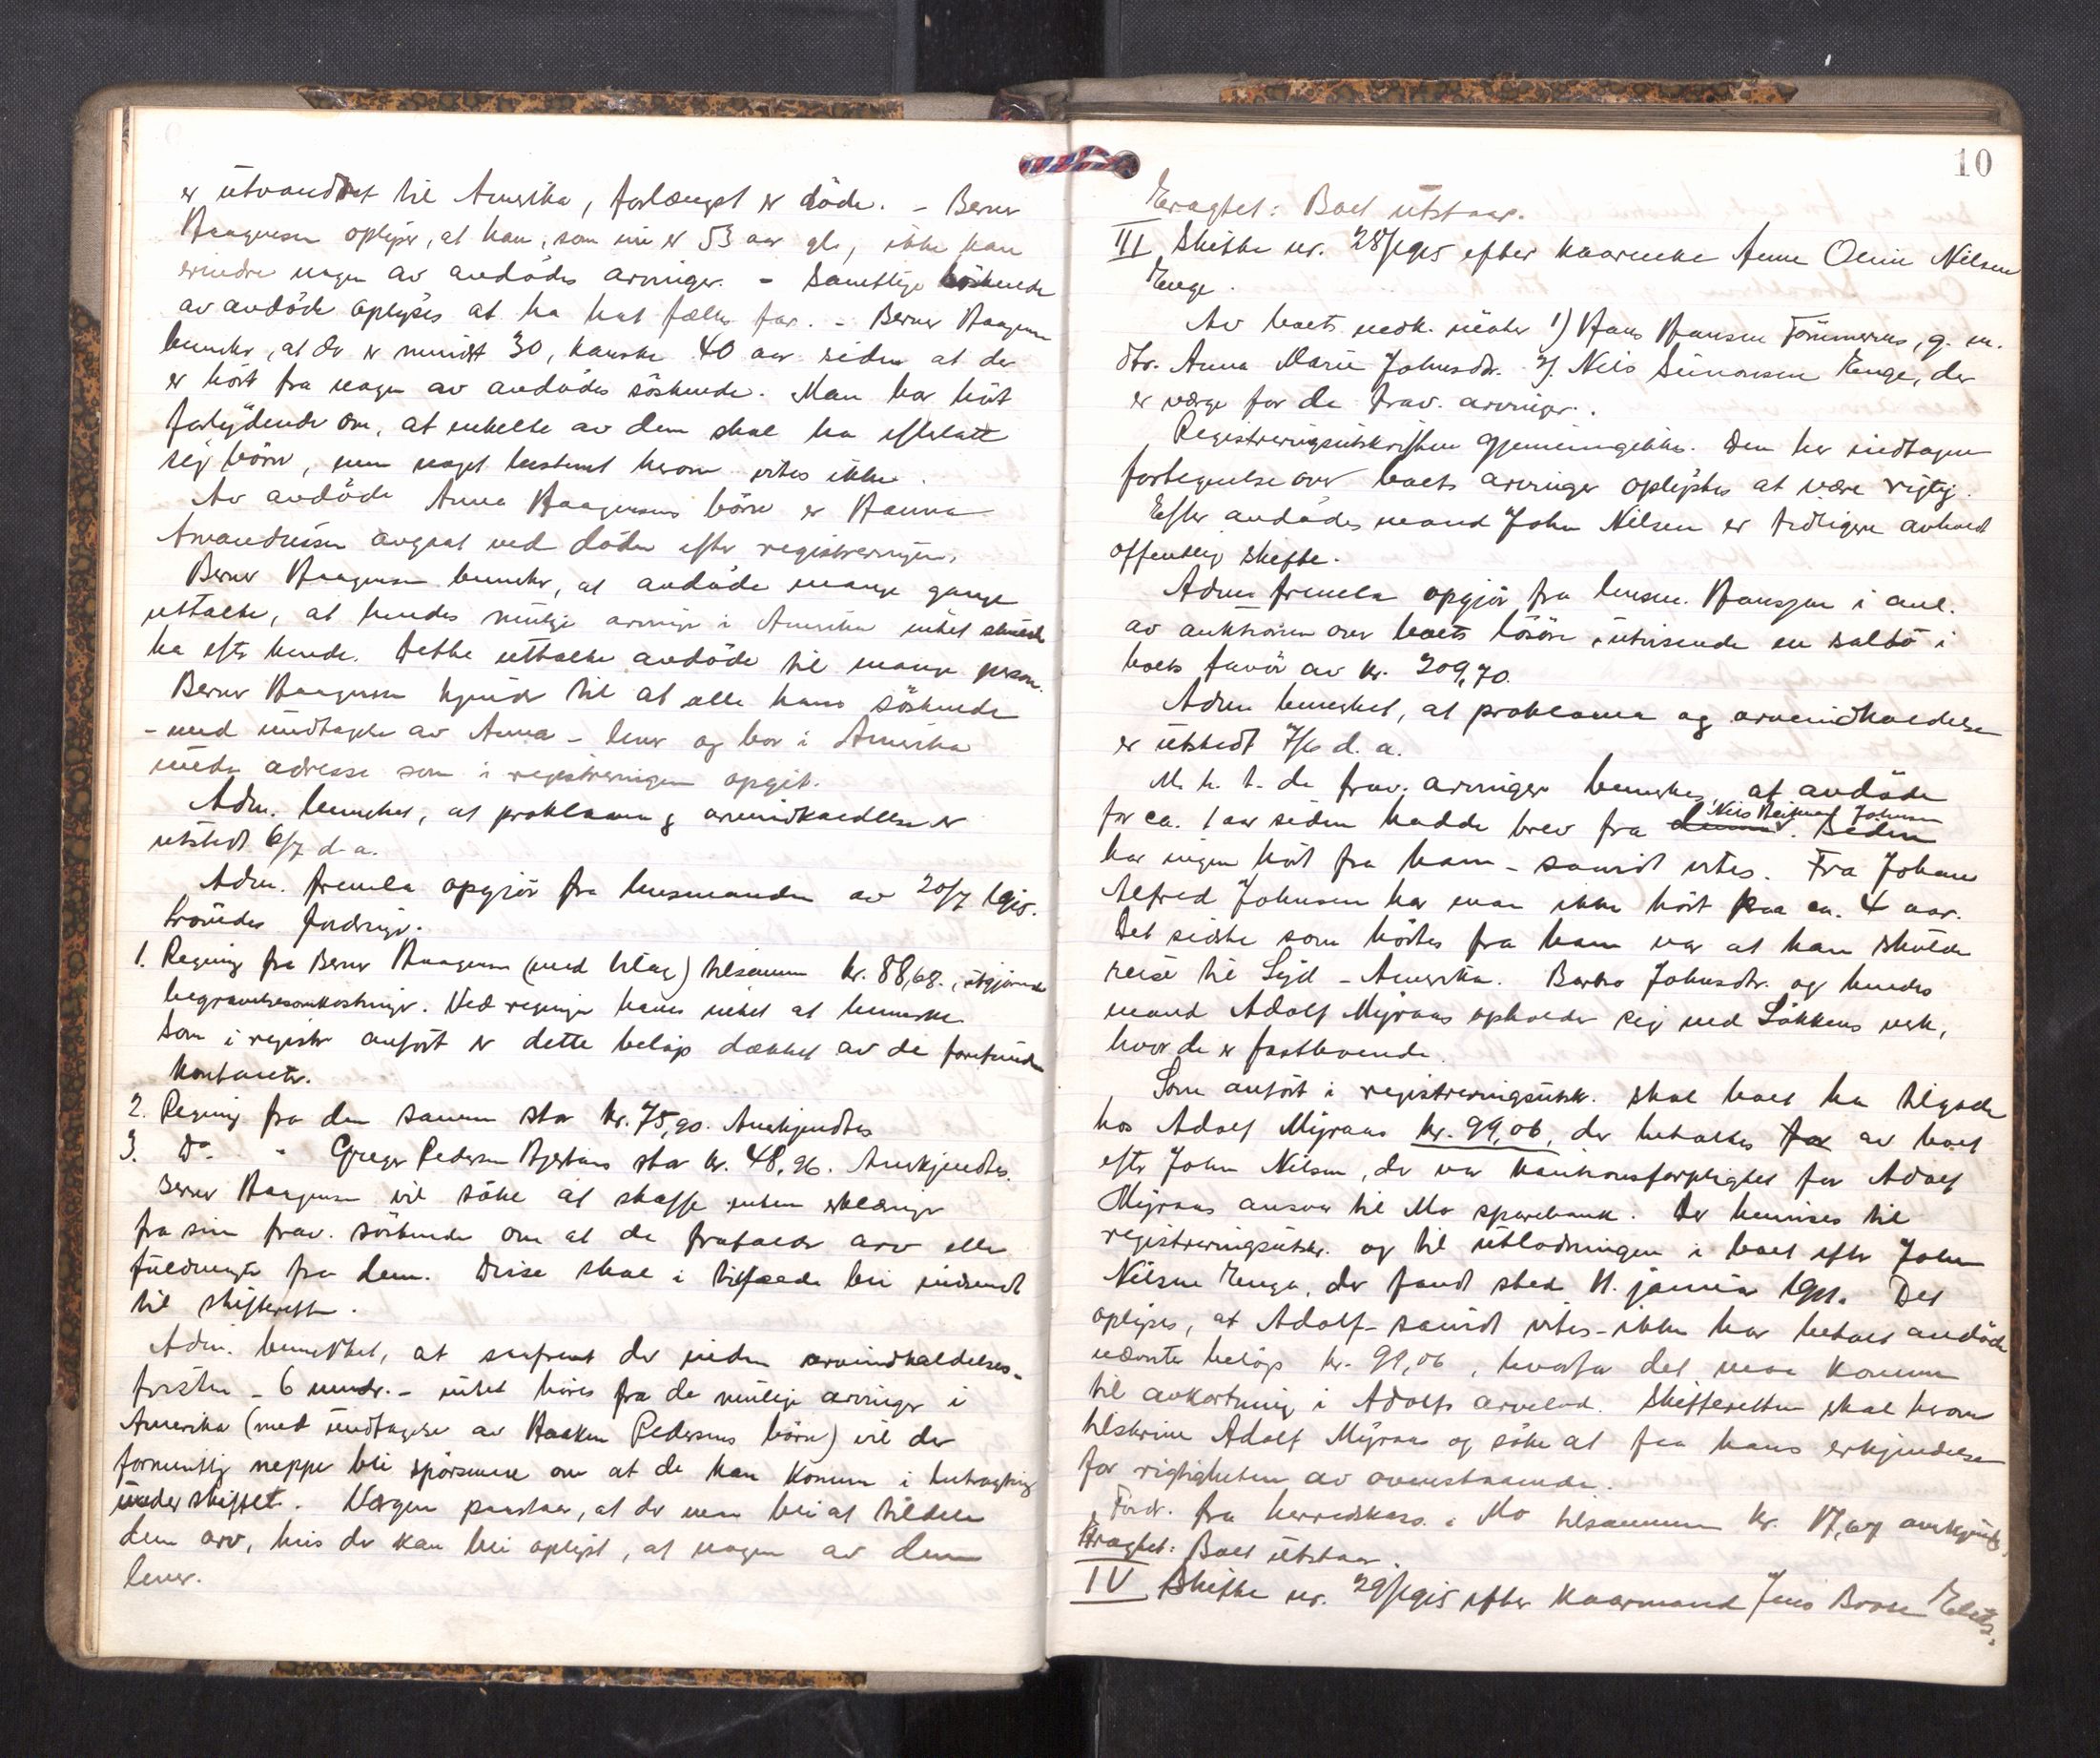 er utvandret til Amerika, forlængst er döde. - Berner
Haagensen oplyser, at han, som nu er 53 aar gl., ikke kan
erindre nogen av avdödes arvinger. - Samtlige söskende
av avdöde oplyses at ha hat fælles far. - Berner Haagensen
bemerker, at der er mindst 30, kanske 40 aar siden at der
er hört fra nogen av avdödes söskende. Man har hört
forlydende om, at enkelte av dem skal ha efterlatt
sig börn, men noget bestemt herom vites ikke.
Av avdöde Anna Haagensens börn er Hanna
Amandussen avgaat ved döden efter registreringen.
Berner Haagensen bemerker, at avdöde mange gange
uttalte, at hendes mulige arvinger i Amerika intet skulde
ha efter hende. Dette uttalte avdöde til mange person.
Berner Haagensen kjender til at alle hans söskende
- med undtagelse av Anna - lever og bor i Amerika
under adresse som i registreringen opgit.
Adm. bemerket, at proklama og arveindkaldelse er
utstedt 6/7 d.a.
Adm. fremla opgjör fra lensmanden av 20/7 1915.
Anmeldes fordringer.
1. Regning fra Berner Haagensen (med bilag) tilsammen kr. 88,68., utgjörende
begravelsesomkostninger. Ved regningen haves intet at bemerke
som i registr. anfört er dette belöp dækket av de forefundne
kontanter.
2. Regning fra den samme stor kr. 75,90. Anerkjendtes
3. Do. " Greger Pedersen stor kr. 48,96. Anerkjendtes.
Berner Haagensen vil söke at skaffe enten erklæringer
fra sine frav. söskende om at de frafalder arv eller
fuldmagter fra dem. Disse skal i tilfælde bli indsendt
til skifteretten.
Adm. bemerket, at saafremt der inden arveindkaldelses-
fristen - 6 mndr. - intet höres fra de mulige arvinger i
Amerika (med undtagelse av Haaken Pedersens börn) vil der
formentlig neppe bli spörsmaal om at de kan komme i betragtning
under skiftet. Vergen paastaar, at der maa bli at tildele
dem arv, hvis der kan bli oplyst, at nogen av dem
lever.
10
Eragtet: Boet utstaar.
III Skifte nr. 28/1915 efter kaarenke Anne Oline Nilsen
Enge.
Av boets vedk. möter 1) Hans Hansen, g. m.
dtr. Anna Marie Johnsdtr. 2). Nils Simonsen Enge, der
er verge for de frav. arvinger.
Registreringsutskriften gjennemgikkes. Den her indtagne
fortegnelse over boets arvinger oplystes at være rigtig.
Efter avdödes mand John Nilsen er tidligere avholdt
offentlig skifte.
Adm. fremla opgjör fra lensm. Hansjen i anl.
av auktionen over boets lösöre, utvisende en saldo i
boets favör av kr. 209,70.
Adm bemerket, at proklama og arveindkaldelse
er utstedt 7/6 d. a.
M. h. t. de frav. arvinger bemerkes, at avdöde
for ca. 1 aar siden hadde brev fra Nils Johnsen. Siden
har ingen hört fra ham - saavidt vites. Fra Johan
Alfred Johnsen har man ikke hört paa ca. 4 aar.
Det sidste som hörtes fra ham var at han skulde
reise til Syd - Amerika. Barbro Johnsdtr. og hendes
mand Adolf Myraas opholder sig ved Løkkens verk,
hvor de er fastboende.
Som anfört i registreringsutskr. skal boet ha tilgode
hos Adolf Myraas kr. 99,06, der betaltes av boet
efter John Nilsen, der var kautionsforpligtet for Adolf
Myraas ansvar til Mo sparebank. Der henvises til
registreringsutskr. og til utlodningen i boet efter John
Nilsen Enge, der fandt sted 11. januar 1911. Det
oplyses, at Adolf - saavidt vites - ikke har betalt avdöde
nævnte belöp kr. 99,06, hvorfor det maa komme
til avkortning i Adolfs arvelod. Skifteretten skal herom
tilskrive Adolf Myraas og söke at faa hans erkjendelse
for rigtigheten av ovenstaaende.
Fordr. fra herredskass. i Mo tilsammen kr. 17,67 anerkjendtes.
Eragtet: Boet utstaar.
IV Skifte nr. 29/1915 efter kaarmand Jens